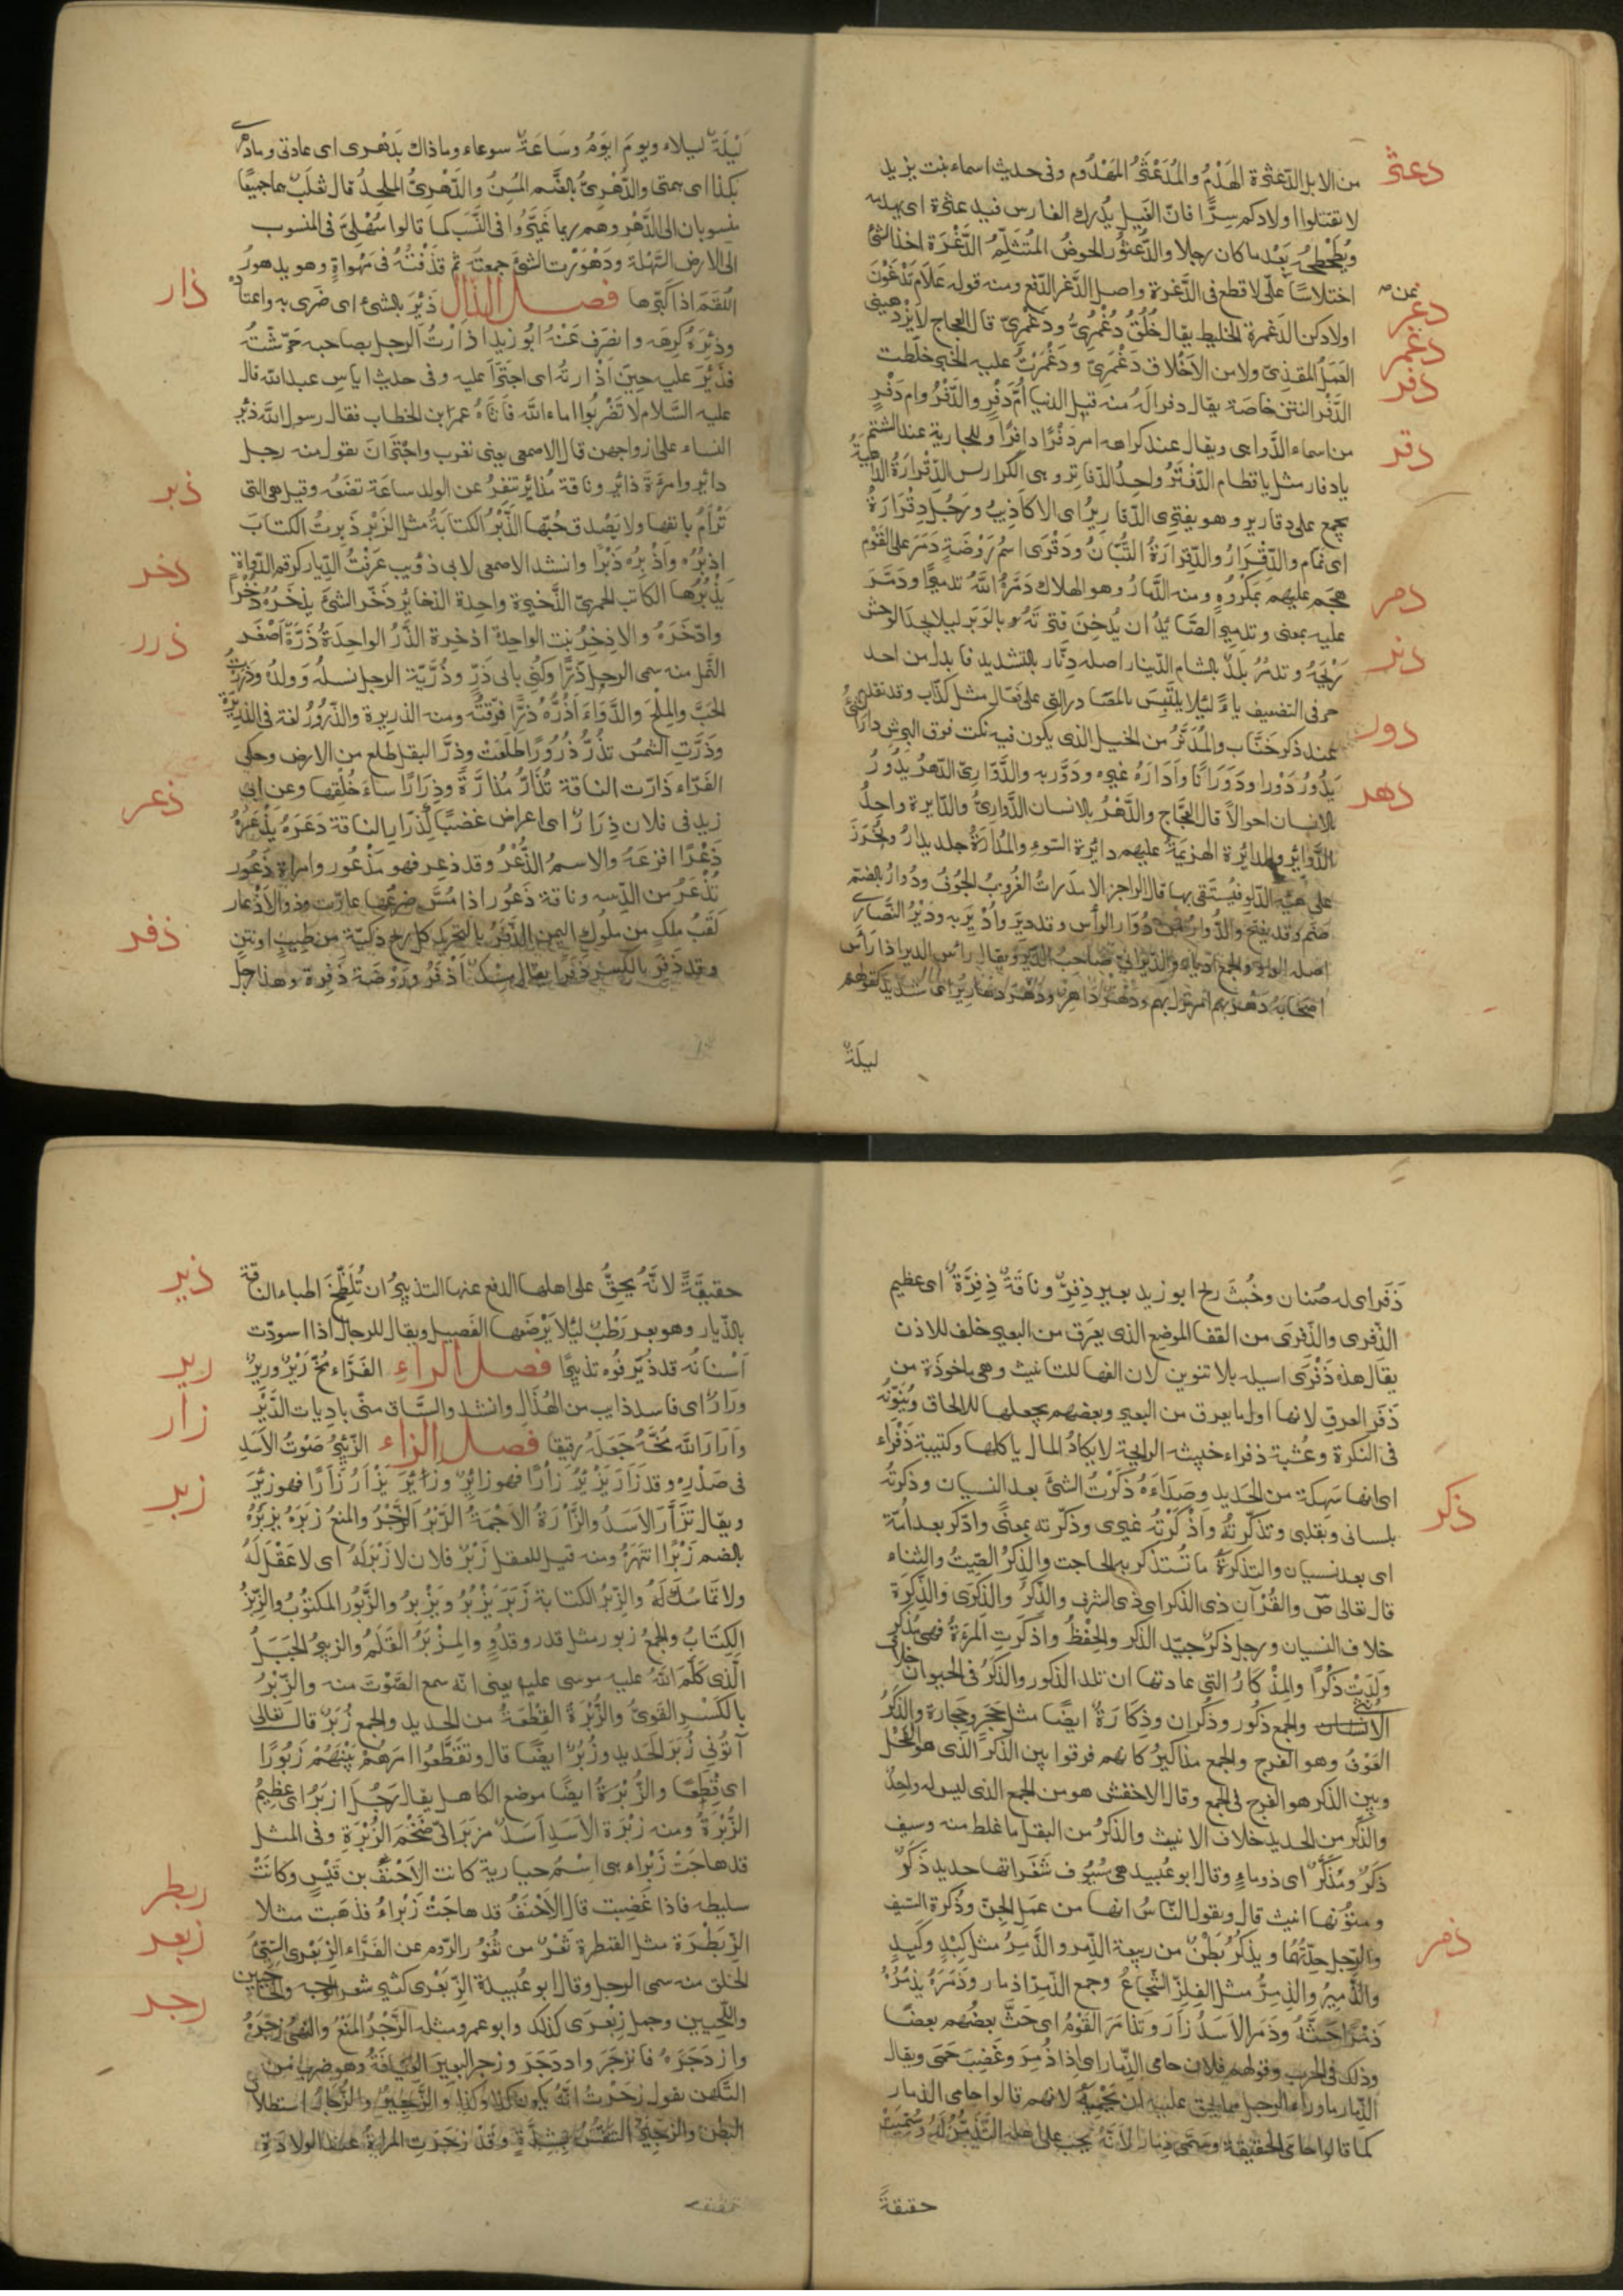 دعثر
من الابل الدّعثرة الهَدْمُ والمُدَعْثَرُ المَهْدُوم وفى حديث اسماء بنت يزيد
لا تقتلوا اولادكم سِرًّا فانّ الغَيل يُدرك الفارس فيدعثره اى يهدمه
ويُطَحْطِحُه بَعْدما كان رجلا والدُّعثُور الحوضُ المُتَثَلِّمُ الدَّغْرَة اخذ الشئ
دغر
اختلاسًا على لا قطع فى الدَّغرة واصل الدَّغر الدّفع ومنه قوله عَلَامَ تَدْغَرْنَ
دغمر
اولادكن الدَغمرة الخليط يقال خُلُقٌ دُغْمُرِىٌّ ودَغْمَرِىّ قال العجاج لا يَزْدَهينى
العَمَلُ المقذىّ ولا من الاَخْلاق دَغْمَرِىّ ودَغْمَرْتُ عليه الخبر خلّطت
دفر
الدَّفْر النتن خاصّة يقال دفرا لَهُ منه قيل الدنيا اُمُّ دَفْرٍ والدَّفْرُ وام دَفْرٍ
من اسماء الدَّواهى ويقال عند كراهه امر دَفْرًا دافِرًا وللجارية عند الشتم
دقر
يا دفار مثل يا قطام الدّفْتَرُ واحِدُ الدّفاتر وهى الكراريس الدِّقْرارَةُ الداهيَةُ
يجمع على دقارير وهو يفترى الدّقاريرُ اى الاكاذيب ورجُل دِقْرَارَةٌ
اى نمام والدِّقْرارُ والدِّقرارَةُ التُّبّانُ ودَقْرَى اسمُ رَوْضَةٍ دَمَرَ على القَوْم
دمر
هجم عليهم بمكروهٍ ومنه الدَّمارُ وهو الهلاك دَمَّرَهُ اللّهُ تدميرًا ودَمَّرَ
عليه بمعنى وتدمير الصّايد ان يُدخِنَ قترتَه بالوَبَر ليلا يجد الوحش
دنر
رَيْحَهُ وتدمُرُ بلدٌ بالشام الدّينار اصله دِنّار بالتشديد فابدل من احد
حرفى التضعيف ياءً ليلا يلتَبِسَ بالمصادر التى على فعّال مثل كذّاب وقد نقدم
دور
عند ذكر خَنّاب والمُدَنَّرُ من الخيل الذى يكون فيه نكت فوق البرش دار الشئ
يَدُورُ دَوْرا ودَوَرَانًا واَدَارَهُ غيره ودَوَّربه والدَّوّارىّ الدّهرُ يَدُورُ
دهر
بالانسان احوالاً قال العجّاج والدَّهْرُ بالانسان الدَّوارِىُّ والدّايرة واحِدُ
الدّوايِر والدايرة الهزيمَةُ عليهم دائِرة السّوءِ والمُدَارَةُ جلد يدارُ ويُخرَزَ
على هيئة الدّلو فيُستقى بها قال الراجز
ليلَةٌ
لَيْلَةٌ ليلاء ويومَ ايوَمُ وسَاعَةٌ سوعاء وما ذاك بدَهْرى اى عادتى وما دهرى
بكذا اى همتى والدُّهْرِىُّ بالضّم المُسِنُّ والدَّهْرِىُّ المُلحِدُ قال ثعلب هما جميعًا
منسوبان الى الدَّهْرِ وهم ربما غَيّرُوا فى النَّسَب كما قالوا سُهْلِىّ فى المنسوب
الى الارض السَّهْلة ودَهْوَرت الشئَ جمعتُهُ ثم قذفْتُهُ فى مَهْواةٍ وهو يدهورُ
ذار
اللُّقَمَ اذا كبّرها فصــل الذال ذَئِرَ بالشئ اى ضَرِى به واعتاده
وذئِرَهُ كرِهَه وانصَرَف عَنْهُ ابُو زيد اذارْتُ الرجل بصاحبه حَرّشْتُهُ
فذَئِرَ عليه حِينَ اَذْارتُهُ اى اجتَرَا عليه وفى حديث اياس عبد اللّه قال
عليه السَّلام لا تَضْرِبُوا اماء اللّه فاتاهُ عمر ابن الخطاب فقال رسول اللّه ذئر
النساء على ازواجهن قال الاصمعى يعنى نفرن واجْتَرانَ يقول منه رجل
ذبر
ذائِر وامرءةٌ ذائِر وناقة مُذائِر تنفِرُ عن الولد ساعَة تضَعُه وقيل هى التى
تَرْاَمُ بانفها ولا يَصْدق حُبّها الذَّبْرُ الكتابةُ مثل الزَبْر ذَبرتُ الكتابَ
ذخر
اذبُرُه واَذْبِرُه ذَبْرًا وانشد الاصمعى لابى ذؤيب عَرَفْتُ الدِّيار كرقم الدّواةِ
يَذْبُرُها الكاتب الحِمْيَرىّ الذَّخيرة واحِدة الذخائِرُ ذَخَر الشئَ يذخَرُهُ ذُخْرًا
ذرر
وادّخَرَهُ والاذخِرُ نبت الواحدة اذخِرة الذَّرُ الواحِدَةُ ذَرَّة اصْغَر
النمل منه سمى الرجل ذَرًّا وكُنى بابى ذَرٍّ وذُرِّيّة الرجل نسلُه وَولدُه وذَرَرْتُ
الحَبَّ والمِلْحَ والدَّواءَ اَذُرُّهُ ذَرًّا فرّقتُه ومنه الذريرة والذَّرُورُ لغة فى الذريرَة
وذَرَّتِ الشمسُ تذُرُّ ذُرُورًا طَلَعَتْ وذرَّ البقل طلع من الارض وحكى
الفَرّاء ذارّت الناقة تُذارُّ مُذارَّةً وذِرَارًا ساءَ خُلُقها وعن ابى
ذعر
زيد فى فلان ذِرَارٌ اى اعراض غضبًا كذِرارِ الناقة ذعَرَهُ يَذْعَرُهُ
ذَعْرًا افزعَهُ والاسمُ الذُّعْرُ وقد ذعِر فهو مَذْعُور وامراةٌ ذَعُور
تُذْعَرُ من الرّيبه وناقة ذَعُور اذا مُسَّ ضرعُها غارّت وذو الاَذْعار
ذفر
لَقَبُ ملكٍ من ملُوك اليمن الذَّفَرُ بالتحرك كل ريح ذكيّة من طيبٍ او نتنٍ
وقد ذَفِرَ بالكسر ذَفَرًا يقال مِسْكٌ اَذْفَرُ ورَوْضَة ذَفِرة وهذا رجل
ذَفَر اى له صُنان وخُبثَ ريح ابو زيد بعير ذِفِرٌّ وناقَةٌ ذِفِرَّةٌ اى عظيم
الذِفرى والذّفرَى من القفا الموضع الذى يعرَق من البعير خلف للاذن
يقال هذه ذَفْرَى اسيله بلا تنوين لان الفها للتانيث وهى ماخوذة من
ذفَر العرق لانها اول ما يعرق من البعير وبعضهم يجعلها للالحاق ويُنَوّنهُ
فى النكرة وعُشبة ذفراء خبيثه الرايحة لا يكادُ المال ياكلها وكتيبة ذَفْراء
ذكر
اى انها سَهكة من الحَديد وصَدَاءَهُ ذكَرْتُ الشئَ بعد النسيان وذكرتُه
بلسانى وبقلبى وتذكّرتهُ واَذْكَرْتُه غيرى وذكّرته بمعنًى وادّكر بعد اُمّة
اى بعد نسيان والتذكرَةُ ما تُستذكر به الحاجت والذِكرُ الصِّيتُ والثناء
قال تعالى صٓ والقُرْآنِ ذى الذكر اى ذى الشرف والذّكرُ والذِكرَى والذِّكرَة
خلاف النسيان ورجل ذكرٌ جيّد الذِكر والحِفْظُ واذكَرَتِ المرءةُ فهى مُذكِر
وَلَدَتْ ذكَرًا والمِذْكارُ التى عادتها ان تلد الذكور والذكَرُ فى الحيوان خلاف
الاُنثى والجمع ذُكُور وذكْران وذِكارَةٌ ايضًا مثل حَجَر وحِجَارة والذكَرُ
العَوْفُ وهو الفرج والجمع مذاكيرُ كانهم فرقوا بين الذكَر الذى هو الفحْل
وبين الذكر هو الفرج فى الجمع وقال الاخفش هو من الجمع الذى ليس له واحِدٌ
والذّكَر من الحديد خلاف الانيث والذكَرُ من البقل ما غلظ منه وسيف
ذكَرٌ ومُذكّرٌ اى ذو ماءٍ وقال ابو عُبيد هى سُيُوف شَفَراتها حديد ذكَرٌ
ومتُونها انيث قال ويقول النّاسُ انها من عَمَلِ الجِنّ وذُكْرة السّيف
ذمر
والرّجل حِدّتُهُا ويذكرُ بَطْنٌ من ربيعة الذِّمر والذَّمِرُ مثل كِبْدٍ وكَبِدٍ
والذَّميرُ والذِمِرُّ مثل الفِلِزّ الشُّجاعُ وجمع الذّمِرُ اذمار وذَمَرَهُ يذمُرُهُ
ذَمْرًا حَثَّهُ وذَمَر الاَسَدُ زاَرَ وتذامَرَ القَوْمُ اى حَثَّ بعضُهم بعضًا
وذلك فى الحرب وقولهم فلان حامى الذِّمار اى اِذا ذُمِرَ وغَضِبَ حَمَى ويقال
الذِّمار ما وراء الرجل مما يحق عليه ان يَحْميَهُ لانهم قالوا حامى الذمار
كما قالوا حامى الحقيقة وسَمّى ذِمارا لاَنّهُ يجب على اهله التَّذَمُّرُ لَهُ وسُمّيَتْ
حقيقةً
ذير
حقيقَةً لانّهُ يَحِقُّ على اهلها الدفع عنها التذييرُ ان تُلَطّخَ اطباء الناقة
بالذّيار وهو بعر رَطْبٌ ليُلا يَرْضَعها الفَصيل ويقال للرجال اذا اسودّت
رير
اَسْنانُه قد ذُيّر فُوهُ تذييرًا فصــل الراء الفَرَّاء مُخّ رَيْرٌ وريرٌ
ورَارٌ اى فاسد ذايب من الهُزَالِ وانشد والسَّاق منّى باديات الرَّيْر
زار
واَرارَ اللّه مُخَّهُ جَعَلَهُ رقيقا فصــل الزاء الزّئِيرُ صَوْتُ الاَسَدِ
فى صَدْرِه وقد زَاَرَ يَزْئِرُ زأرًا فهو زائِرٌ وزَئِرَ يَزْاَرُ زَاَرًا فهو زَئِرٌ
زبر
ويقال تَزَأَّرَ الاَسَدُ والزَّأرَةُ الاَجْمَةُ الزَّبْرُ الزَّجْرُ والمنعُ زبَرَهُ يَزبُرُهُ
بالضم زَبْرًا انتهَرَهُ ومنه قيل للعقل زَبْرٌ فلان لا زَبْرَلَهُ اى لا عَقْلَ لَهُ
ولا تَمَاسُكَ لَهُ والزّبرُ الكتابة زَبَرَ يَزْبُرُ ويَزْبِرُ والزَّبُور المكتوُبُ والزّبْرُ
الكِتَابُ والجمعُ زبور مثل قدر وقدُورٍ والمِزْبَرُ القَلَمُ والزبيرُ الجَبَلُ
الَّذى كلَّمَ اللّهُ عليه موسى عليه يعنى انّه سمع الصَّوْتَ منه والزّبْرُ
بالكَسْرِ القَوِىُّ والزُّبْرَةُ القِطْعَةُ من الحديد والجمع زُبَرٌ قال تعالى
آتُونى زُبَرَ الحَديد وزُبُرٌ ايضًا قال وتقَطّعُوا امرَهُمْ بَيْنَهُمْ زبُورًا
اى قِطَعًا والزُّبْرَةُ ايضًا موضع الكاهل يقال رَجُل ازبَرُ اى عظيمُ
الزُّبْرَةُ ومنه زبْرَة الاَسَدِ اَسَدٌ مزبَرَانّى ضَخْمَ الزُبْرَةِ وفى المثل
قد هاجَتْ زَبْراء هى اسْمُ جارية كانت الاَحْنَفُ بن قَيْسٍ وكانَتْ
زبطر
سليطه فاذا غَضِبت قال الاَحْنَفُ قد هاجَتْ زَبْراءُ فذهَبت مثلا
زبعر
الزّبَطْرَة مثل القنطرة ثَغْرٌ من ثُغُوْر الرّوم عن الفَرّاء الزبَعْرى السَّيّئُ
الخلق منه سمى الرجل وقال ابو عُبيدة الزّبَعْرى كثير شعر الوجه والحاجبين
زجر
واللّحيين وجمل زِبَعْرَى كذلك وابو عمرو مثله الزَّجْرُ المَنْعُ والنّهْىُ زجَرَهُ
وازدَجَرَهُ فانزجَرَ وادجَرَ وزجر البعيرَ العِيافَةُ وهو ضرب من
التكهن يقول زجَرْتُ انّهُ يكون كذا وكذا والزَّحِيرُ والزُّحَارُ استطلاق
البَطن والزحيرُ التنفّسُ بشِدَّةٍ وقد زحَرَتِ المرءة عند الولادَةِ